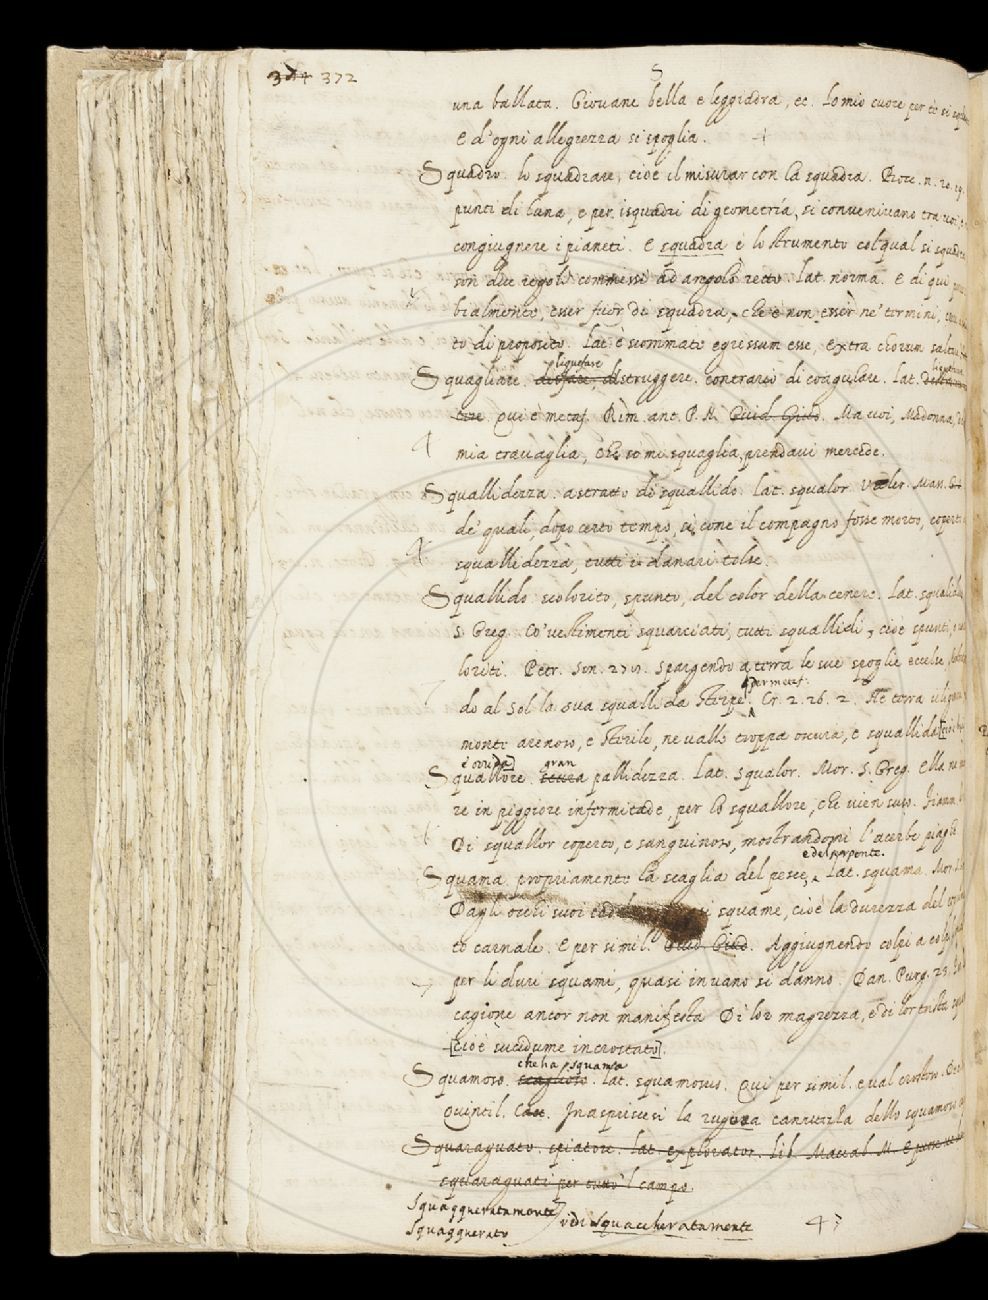 374 372
S
una ballata. Giovane bella e leggiadra, ec. Lo mio cuore per te si
E d'ogni allegrezza si spoglia.
Squadro. lo squadrare, cioè il misurar con la squadra. Bocc. n. 20.
punti di luna, e per isquadri di geometría, si convenivano tra
congiugnere i pianeti. E squadra è lo strumento col qual si squadra
son due regoli commessi ad angolo retto. lat. norma. E di qui
bialmente, esser fuor di squadra, che è non esser ne' termini,
to di proposito. lat. è summato egressum esse, extra chorum saltare
liquefare
Squagliare. disfare, distruggere. contrario di coagulare. lat.
Qui è metaf. Rim. ant. P. N. Guid. Giud. Ma voi, Madonna,
mia travaglia, Che so mi squaglia, prendavi mercede.
Squallidezza. astratto di squallido. lat. squalor. Valer. Mass.
de' quali, dopo certo tempo, si, come il compagno fosse morto, coperto
squallidezza, tutti i danari tolse.
Squallido. scolorito, spunto, del color della cenere. lat. squalidus
S. Greg. Co' vestimenti squarciati, tutti squallidi, cioè spunti,
loriti. Petr. Son. 27. Spargendo a terra le sue spoglie eccelse,
per metaf.
do al sol la sua squallida stirpe. Cr. 2. 26. 2. Ne terra
monte arenoso, e sterile, ne valle troppa oscura, e squallida
e orrida] gran
Squallore. scura pallidezza. lat. squalor. Mor. S. Greg. Ella
re in piggiore infermitade, per lo squallore, che vien suso.
Di squallor coperto, e sanguinoso, mostrandomi l'acerbe piaghe
e del serpente.
Squama. propriamente la scaglia del pesce, lat. squama. Mor.
Dagli occhi suoi squame, cioè la durezza del
to carnale. E per simil. Guid. Giud. Aggiugnendo colpi a colpi
per li duri squami, quasi invano si danno. Dan. Purg. 23.
cagione ancor non manifesta Di lor magrezza, e di lor trista
[cioè sucidume incrostato].
che ha squama
Squamoso. scaglioso. lat. squamosus. Qui per simil. e val crostoso.
Quintil. Inasprissesi la rugosa canutezza dello squamoso
Squaraguato. spiatore. lat. explorator. lib. Mascal. M. E
squaraguati per tutto 'l campo.
Squaqqueratamente
Squaqquerato
vedi squaccheratamente